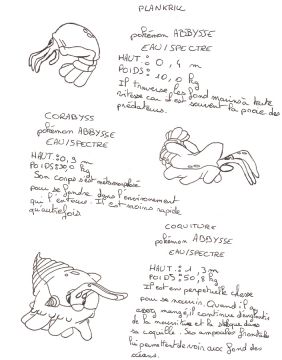 PLANKRILL
pokémon ABBYSSE
EAU/SPECTRE
HAUT.: 0, 4 m
POIDS: 10,0 kg
Il traverse les fond marins à toute
vitesse car il est souvent la proie des
prédateurs.
CORABYSS
pokémon ABBYSSE
EAU/SPECTRE
HAUT.: 0,3 m
POIDS: kg
Son corps s'est métamorphosé
pour se fondre dans l'environnement
qui l'entoure. Il est moins rapide
qu'autrefois
COQUITURE
pokémon ABYSSE
EAU/SPECTRE
HAUT.: 1, 3 m
POIDS: 50, 8 kg
Il est en perpetuelle chasse
pour se nourrir. Quand il a
assez mangé, il continue d'engloutir
de la nourriture et la stocke dans
sa coquille. Ses ampoules frontales
lui permettent de voir aux fond des
océans.